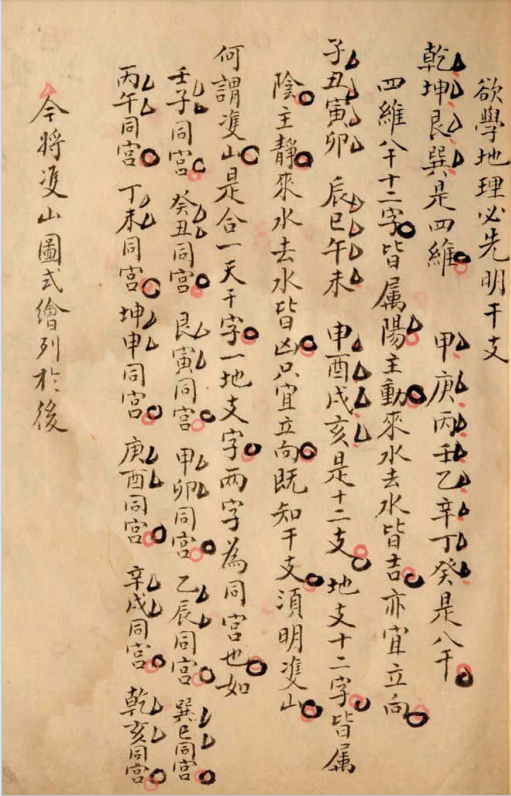 欲學地理必先明干支
乾坤艮巽是四維 甲庚丙壬乙辛丁癸是八干
四維八干十二字皆属陽主動來水去水皆吉亦宜立向
子丑寅卯 辰巳午未 申酉戌亥是十二支 地支十二字皆属
陰主靜來水去水皆凶只宜立向既知干支須明㕠山
何謂㕠山是合一天干字一地支字兩字為同宮也如
壬子同宮 癸丑同宮 艮寅同宮 甲卯同宮 乙辰同宮 巽巳同宮
丙午同宮 丁未同宮 坤申同宮 庚酉同宮 辛戌同宮 乾亥同宮
今將㕠山圖式繪列於後